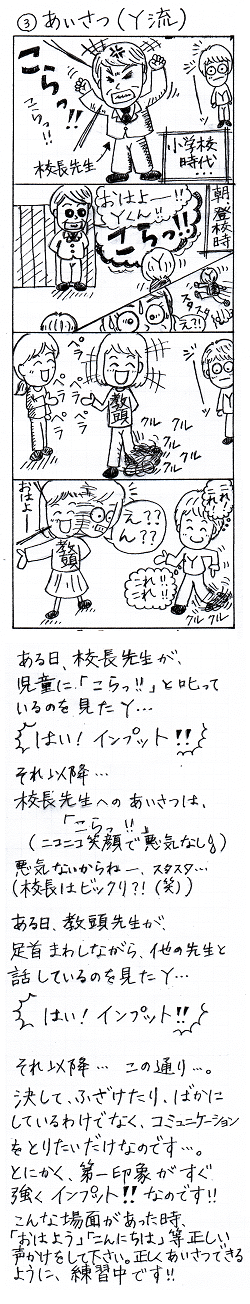 ③あいさつ(Y流)
こらっ!!
こらっ!!
校長先生
小学校
時代…
朝、登校時
おはよー!!
Yくん!!
こらっ!!
スタスタ
え?!
ペラペラ
ペラペラ
教頭
クルクル
クルクル
おはよー
教頭
え??
ん??
これ!!
これ!!
クルクル
ある日、校長先生が、
児童に「こらっ!!」と叱って
いるのを見たY…
はい!インプット!!
それ以降…
校長先生へのあいさつは、
「こらっ!!」
(ニコニコ笑顔で悪気なし)
悪気ないからねー、スタスタ…
(校長はビックリ?!(笑))
ある日、教頭先生が、
足首まわしながら、他の先生と
話しているのを見たY…
はい!インプット!!
それ以降… この通り…。
決して、ふざけたり、ばかに
しているわけでなく、コミュニケーション
をとりたいだけなのです…。
とにかく、第一印象がすぐ
強くインプット!!なのです!!
こんな場面があった時、
「おはよう」「こんにちは」等正しい
声かけをして下さい。正しくあいさつできる
ように、練習中です!!